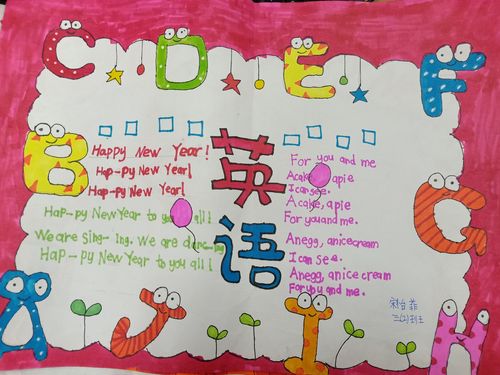 C D E F
B
英
语
Happy New Year!
Hap-py New Year!
Hap-py New Year!
Hap-py New Year to you all!
We are sing-ing. We are dancing
Hap-py New Year to you all!
For you and me
A cake, a pie
I can see.
A cake, a pie
For you and me.
An egg, an ice cream
I can see.
An egg, an ice cream
For you and me.
G
三(2)班
A J I H